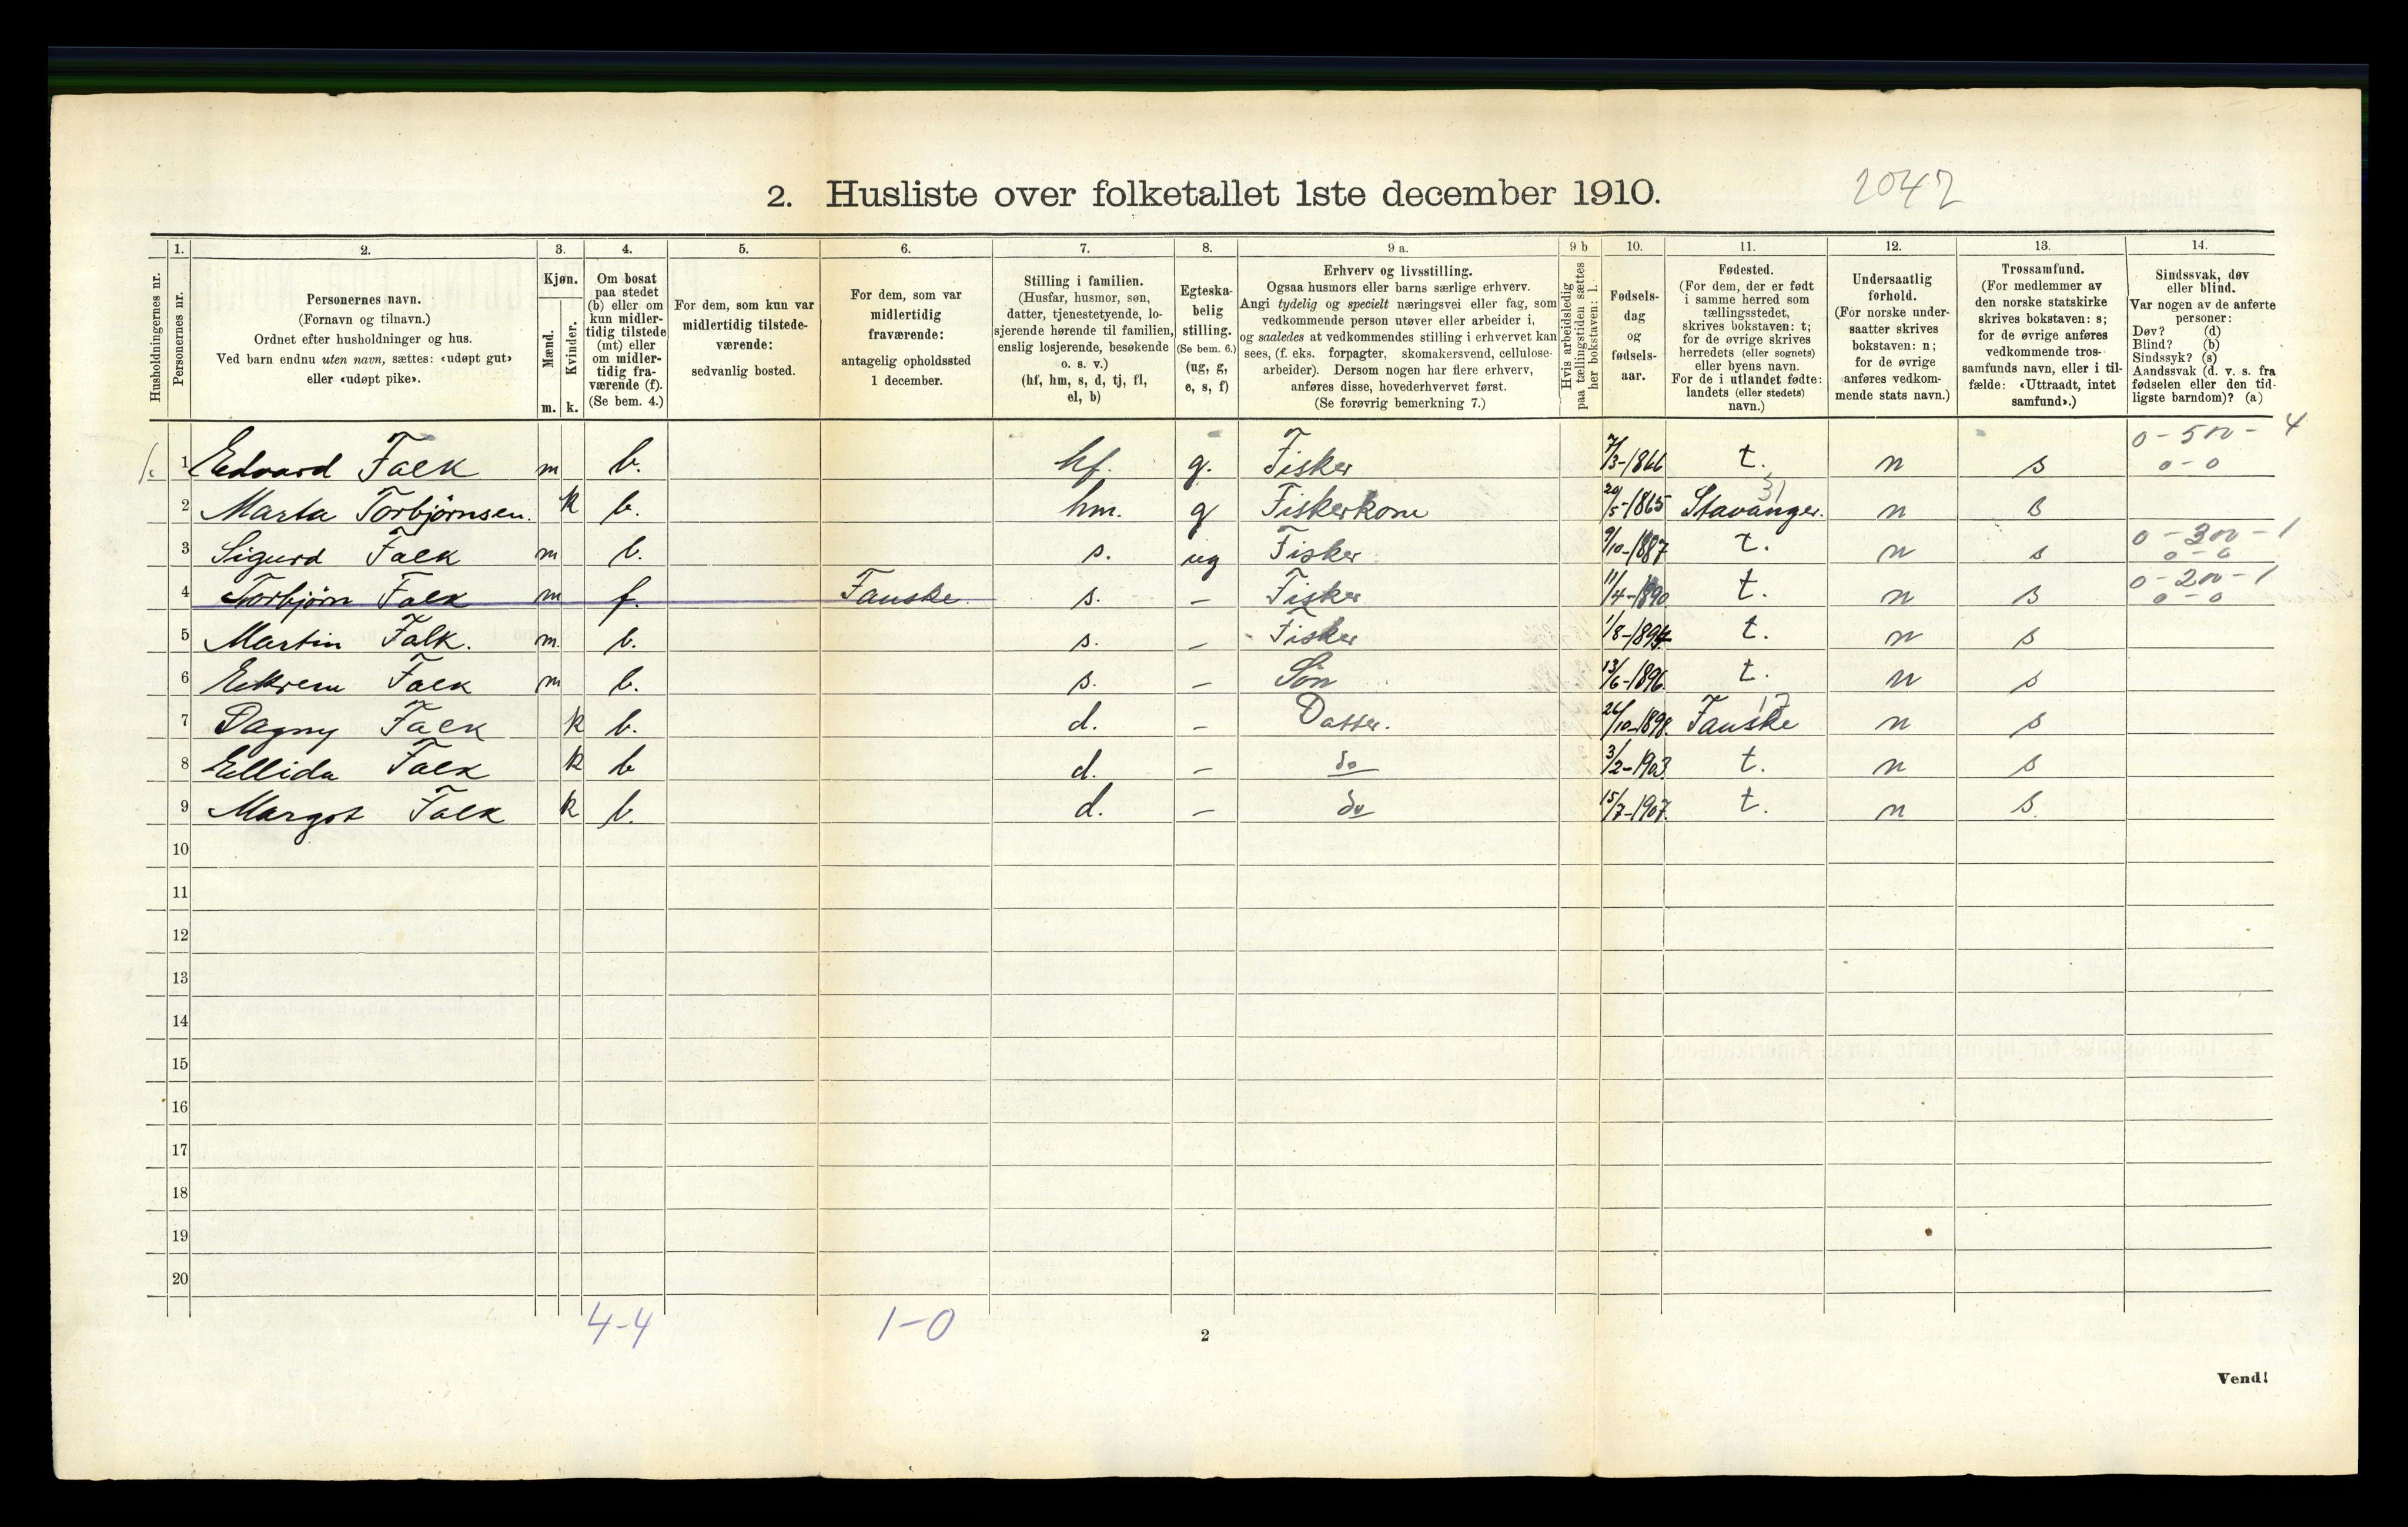 2. Husliste over folketallet 1ste december 1910.
2042
Husholdningernes nr.
1.
Personernes nr.
2.
Personernes navn.
(Fornavn og tilnavn.)
Ordnet efter husholdninger og hus.
Ved barn endnu uten navn, sættes: «udøpt gut»
eller «udøpt pike».
3.
Kjøn.
Mænd.
Kvinder.
m. k.
4.
Om bosat
paa stedet
(b) eller om
kun midler-
tidig tilstede
(mt) eller
om midler-
tidig fra-
værende (f).
(Se bem. 4.)
5.
For dem, som kun var
midlertidig tilstede-
værende:
sedvanlig bosted.
6.
For dem, som var
midlertidig
fraværende:
antagelig opholdssted
1 december.
7.
Stilling i familien.
(Husfar, husmor, søn,
datter, tjenestetyende, lo-
sjerende hørende til familien,
enslig losjerende, besøkende
o. s. v.)
(hf, hm, s, d, tj, fl,
el, b)
8.
Egteska-
belig
stilling.
(Se bem. 6.)
(ug, g,
e, s, f)
9 a.
Erhverv og livsstilling.
Ogsaa husmors eller barns særlige erhverv.
Angi tydelig og specielt næringsvei eller fag, som
vedkommende person utøver eller arbeider i,
og saaledes at vedkommendes stilling i erhvervet kan
sees, (f. eks. forpagter, skomakersvend, cellulose-
arbeider). Dersom nogen har flere erhverv,
anføres disse, hovederhvervet først.
(Se forøvrig bemerkning 7.)
9 b
Hvis arbeidsledig
paa tællingstiden sættes
her bokstaven: l.
10.
Fødsels-
dag
og
fødsels-
aar.
11.
Fødested.
(For dem, der er født
i samme herred som
tællingsstedet,
skrives bokstaven: t;
for de øvrige skrives
herredets (eller sognets)
eller byens navn.
For de i utlandet fødte:
landets (eller stedets)
navn.)
12.
Undersaatlig
forhold.
(For norske under-
saatter skrives
bokstaven: n;
for de øvrige
anføres vedkom-
mende stats navn.)
13.
Trossamfund.
(For medlemmer av
den norske statskirke
skrives bokstaven: s;
for de øvrige anføres
vedkommende tros-
samfunds navn, eller i til-
fælde: «Uttraadt, intet
samfund».)
14.
Sindssvak, døv
eller blind.
Var nogen av de anførte
personer:
Døv? (d)
Blind? (b)
Sindssyk? (s)
Aandssvak (d. v. s. fra
fødselen eller den tid-
ligste barndom)? (a)
1 Edvard Falk m b. hf. g. Fisker 7/3-1866 t. n s 0-500-4 0-0
2 Marta Torbjørnsen. k b. hm. g Fiskerkone 20/5-1865 Stavanger. 31 n s
3 Sigurd Falk m b. s. ug Fisker 9/10-1887 t. n s 0-300-1 0-0
4 Torbjørn Falk m f. Fauske s. - Fisker 11/4-1890 t. n s 0-200-1 0-0
5 Martin Falk. m. b. s. - Fisker 1/8-1894 t. n s
6 m b. s. - Søn 13/6-1896 t. n s
7 Dagny Falk k b. d. - Datter. 26/10-1898. Fauske n s
8 Ellida Falk k b d. - do 3/2-1903 t. n s
9 Margot Falk k b. d. - do 15/7-1907. t. n s.
10
11
12
13
14
15
16
17
18
19
20
4-4 1-0
2
Vend!